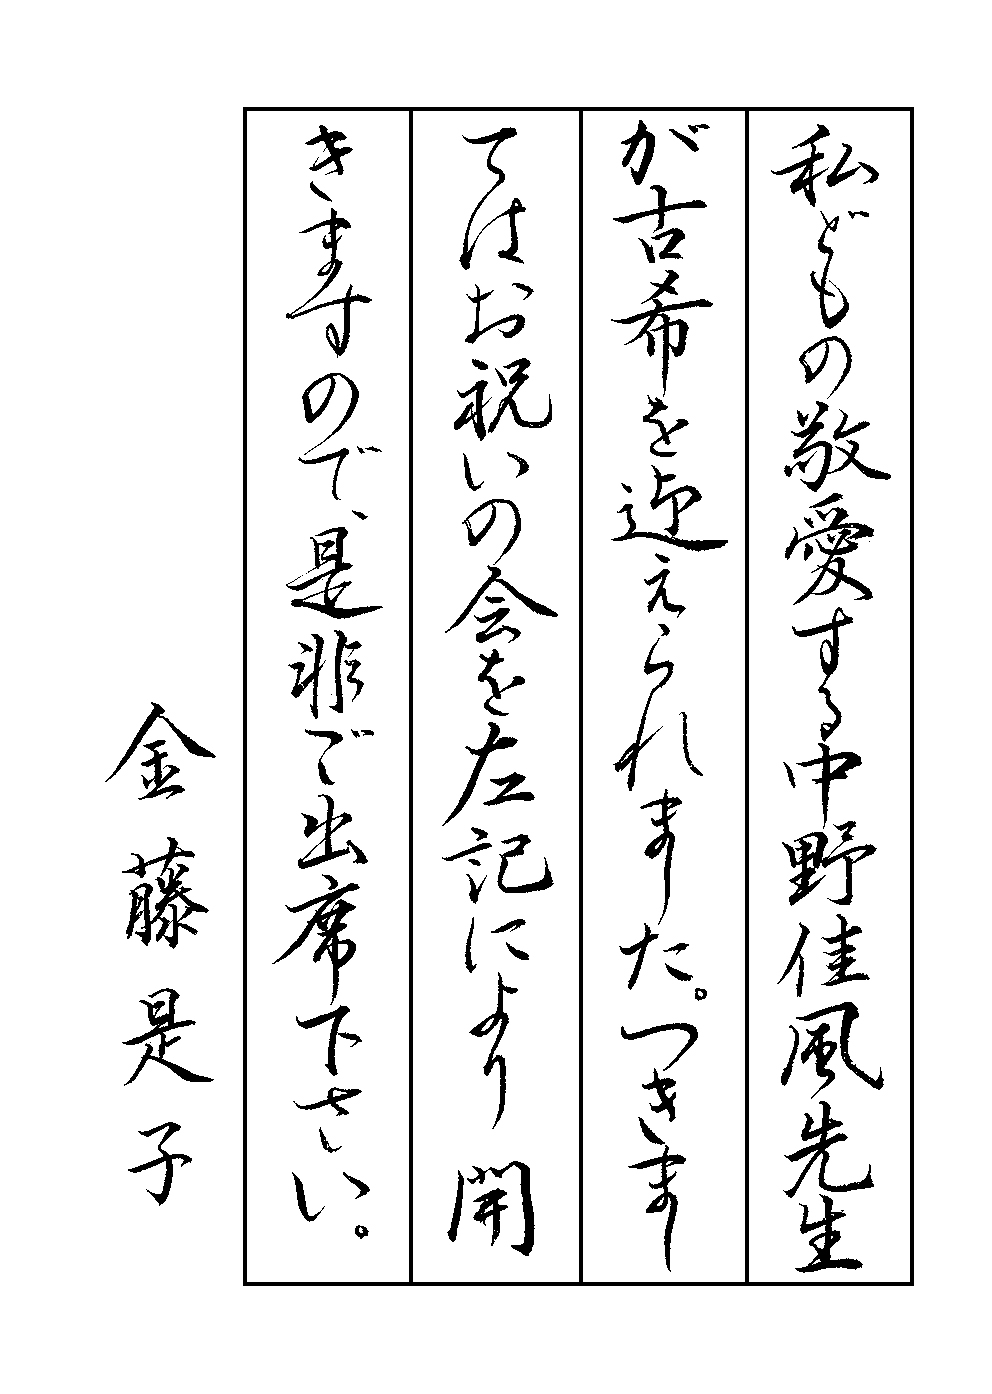 私どもの敬愛する中野佳風先生
が古希を迎えられました。つきまし
てはお祝いの会を左記により開
きますので、是非ご出席下さい。
金藤是子